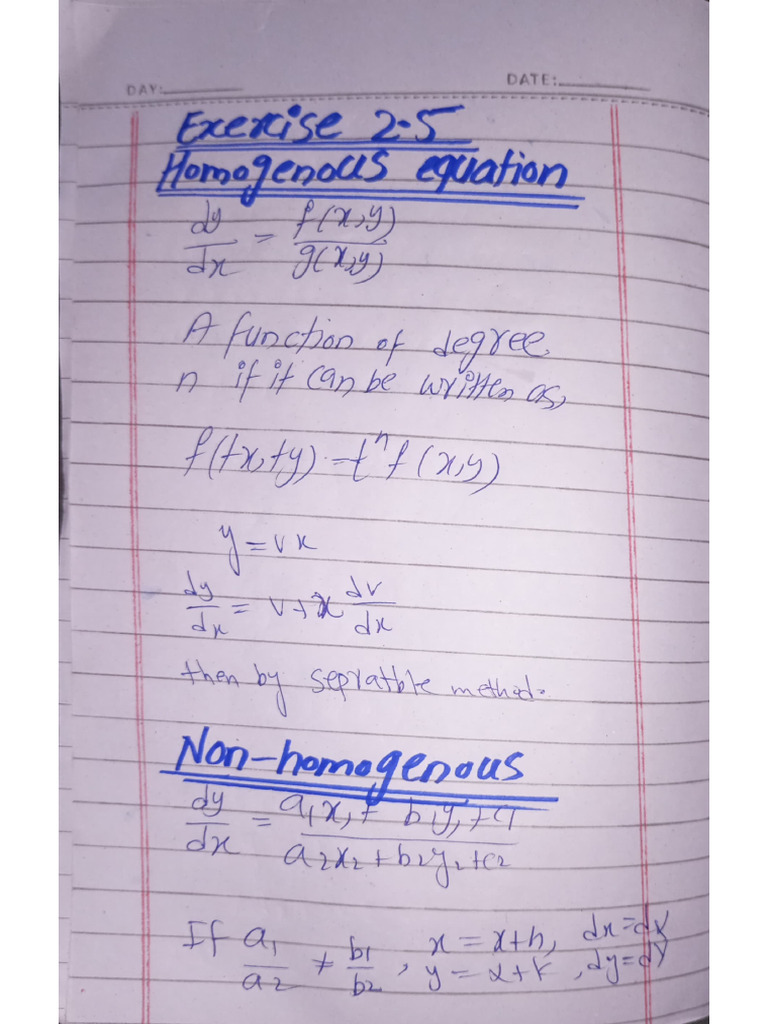 DAY: DATE:
Exercise 2.5
Homogenous equation
dy/dx = f(x,y)/g(x,y)
A function of degree
n if it can be written as,
f(tx,ty) = t^n f(x,y)
y = vx
dy/dx = v + x dv/dx
then by sepratble method.
Non-homogenous
dy/dx = a1x1 + b1y1 + c1 / a2x2 + b2y2 + c2
If a1/a2 ≠ b1/b2, x = X+h, dx = dX
y = X+k, dy = dY